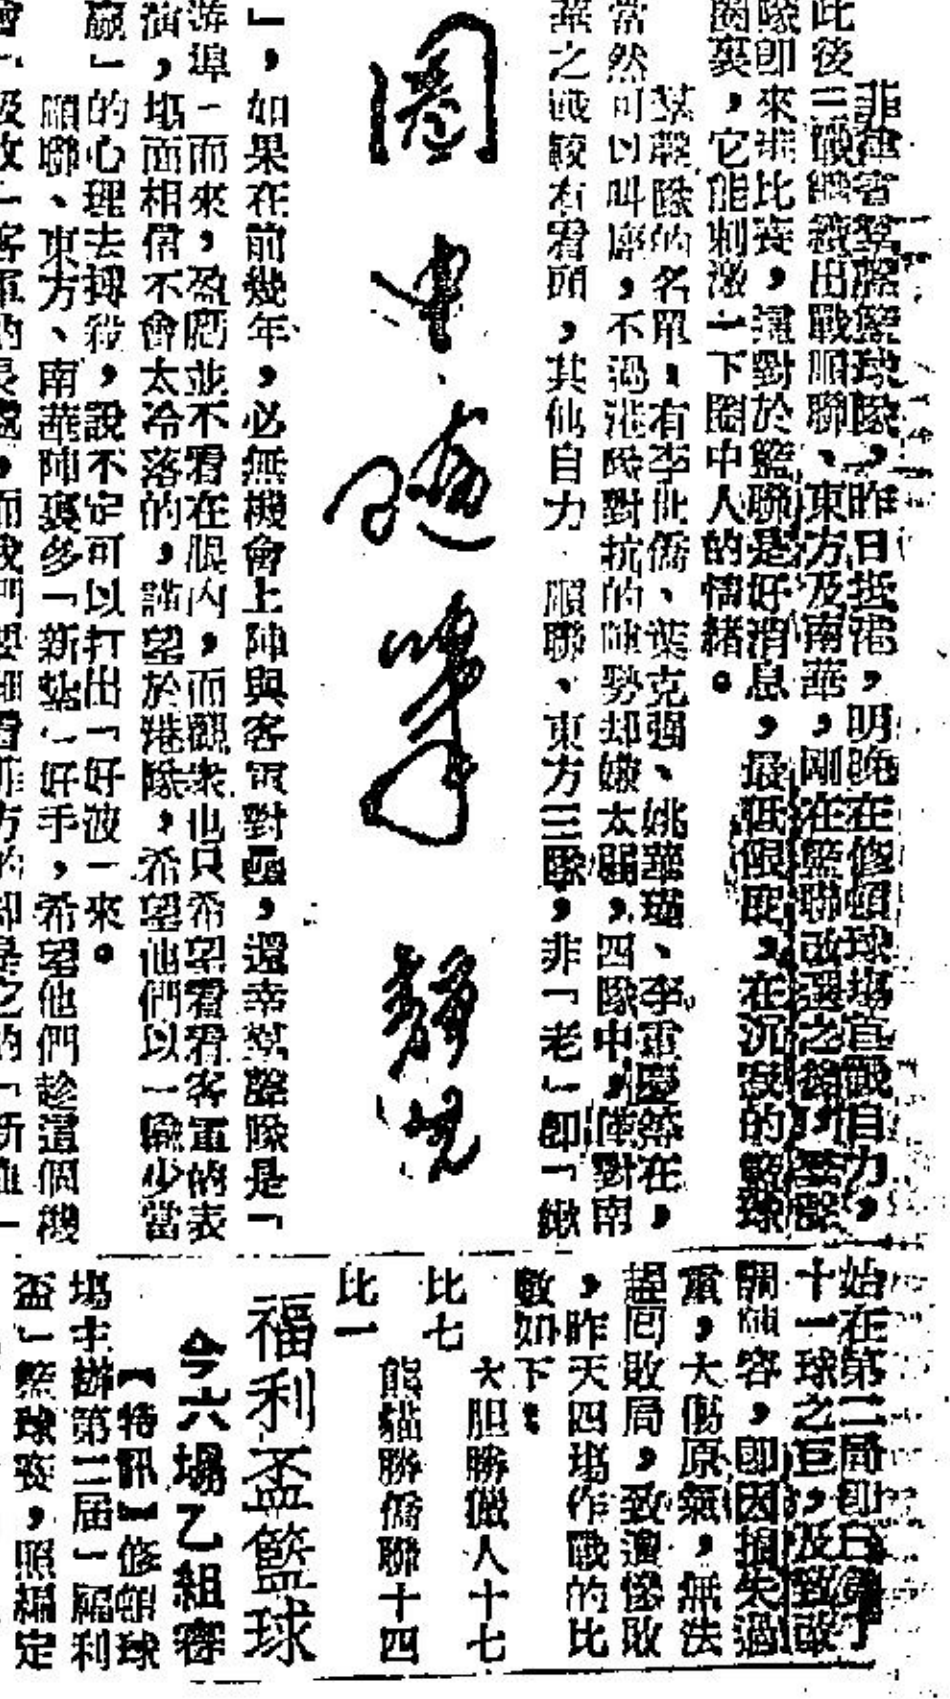 菲律賓羣聲籃球隊，昨日抵港，明晚在修頓球場首戰自力，
此後三戰繼續出戰順聯、東方及南華，剛在籃聯改選之後，羣聲
隊即來港比賽，這對於籃聯是好消息，最低限度，在沉寂的籃球
圈裏，它能刺激一下圈中人的情緒。
羣聲隊的名單，有李世僑、葉克强、姚華瑞、李重慶等在，
當然可以叫座，不過港隊對抗的陣勢却嫌太弱，四隊中，僅對南
華之戰較有看頭，其他自力　順聯、東方三隊，非「老」卽「嫩
圈中隨筆
」，如果在前幾年，必無機會上陣與客軍對壘，還幸羣聲隊是「
游埠」而來，盈虧並不看在眼內，而觀衆也只希望看看客軍的表
演，場面相信不會太冷落的，謹望於港隊，希望他們以「輸少當
贏」的心理去搏殺，說不定可以打出「好波」來。
順聯、東方、南華陣裏多「新紮」好手，希望他們趁這個機
會，吸收一客軍的長處，而我們要細看菲方的却是之的「新血」
始在第二局即
十一球之巨，及致改
調陣容，即因損失過
重，大傷原氣，無法
趕囘敗局，致遭慘敗
，昨天四場作戰的比
數如下：
大胆勝獵人十七
比七
熊貓勝僑聯十四
比一
福利盃籃球
今六場乙組賽
【特訊】修頓球
場主辦第二届「福利
盃」籃球賽，照編定